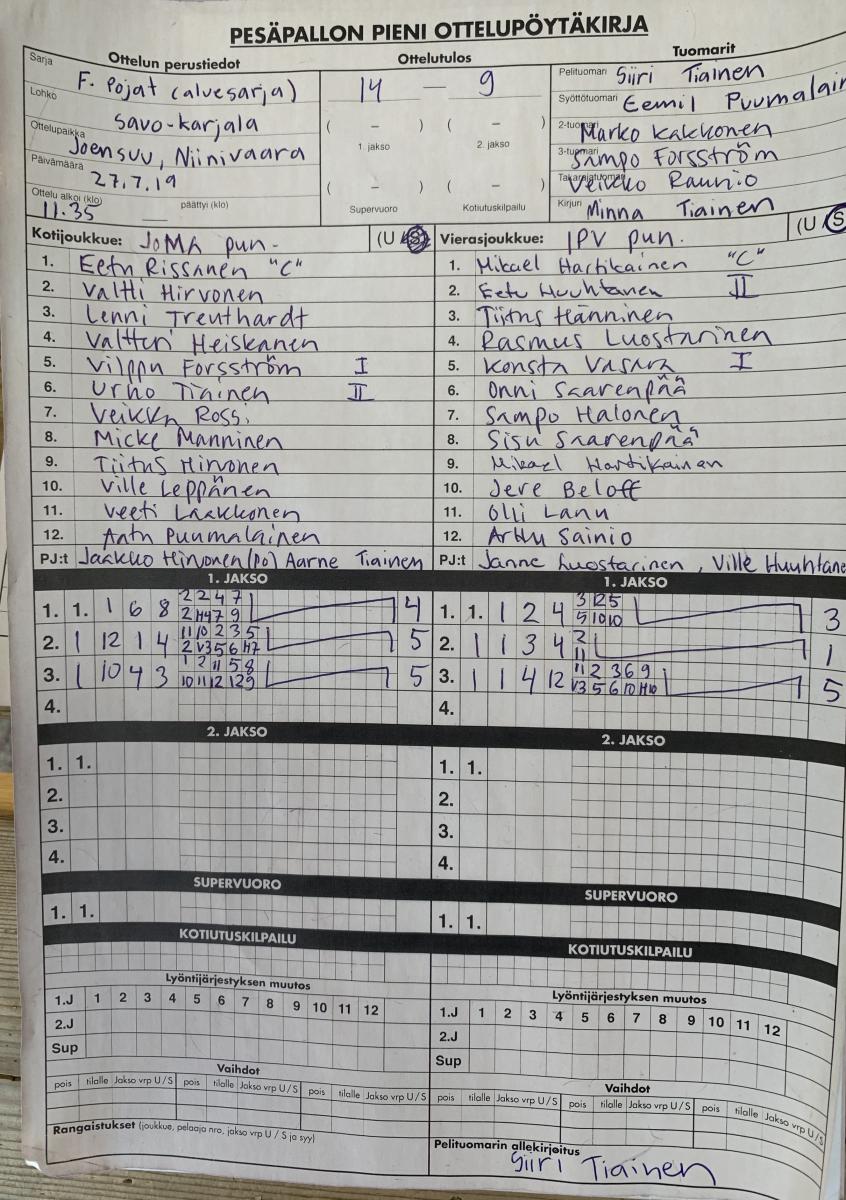 PESÄPALLON PIENI OTTELUPÖYTÄKIRJA
Ottelun perustiedot
Ottelutulos
Tuomarit
Sarja F. Pojat (aluesarja)
Lohko Savo-karjala
Ottelupaikka Joensuu, Niinivaara
Päivämäärä 27.7.19
Ottelu alkoi (klo) 11.35 päättyi (klo)
14 — 9
( – ) ( – )
1. jakso 2. jakso
( – ) ( – )
Supervuoro Kotiutuskilpailu
Pelituomari Siiri Tiainen
Syöttötuomari Eemil Puumalain
2-tuomari Marko Kakkonen
3-tuomari Sampo Forsström
Takarajatuomari Veikko Raunio
Kirjuri Minna Tiainen
Kotijoukkue: JoMa pun. (U S)
1. Eetu Rissanen "C"
2. Valtti Hirvonen
3. Lenni Treuthardt
4. Valtteri Heiskanen
5. Vilppu Forsström I
6. Urho Tiainen II
7. Veikka Rossi
8. Micke Manninen
9. Tiitus Hirvonen
10. Ville Leppänen
11. Veeti Laakkonen
12. Antu Puumalainen
PJ:t Jaakko Hirvonen (po) Aarne Tiainen
Vierasjoukkue: IPV pun. (U S
1. Mikael Hartikainen "C"
2. Eetu Huuhtanen II
3. Tiitus Hänninen
4. Rasmus Luostarinen
5. Konsta Vasara I
6. Onni Saarenpää
7. Sampo Halonen
8. Sisu Saarenpää
9. Mikael Hartikainen
10. Jere Beloff
11. Olli Lanu
12. Arttu Sainio
PJ:t Janne Luostarinen, Ville Huuhtane
1. JAKSO
1. 1. 1 6 8 2 2 4 7 4
2 H4 7 9
2. 1 12 1 4 11 10 2 3 5 5
2 V3 5 6 H7
3. 1 10 4 3 1 2 11 5 8 5
10 11 12 12 9
4.
1. JAKSO
1. 1. 1 2 4 3 12 5 3
5 10 10
2. 1 1 3 4 2 1
11
3. 1 1 4 12 11 2 3 6 9 5
V3 5 6 10 H10
4.
2. JAKSO
1. 1.
2.
3.
4.
2. JAKSO
1. 1.
2.
3.
4.
SUPERVUORO
1. 1.
SUPERVUORO
1. 1.
KOTIUTUSKILPAILU
KOTIUTUSKILPAILU
Lyöntijärjestyksen muutos
1.J 1 2 3 4 5 6 7 8 9 10 11 12
2.J
Sup
Lyöntijärjestyksen muutos
1.J 1 2 3 4 5 6 7 8 9 10 11 12
2.J
Sup
Vaihdot
pois tilalle Jakso vrp U/S pois tilalle Jakso vrp U/S pois tilalle Jakso vrp U/S
Vaihdot
pois tilalle Jakso vrp U/S pois tilalle Jakso vrp U/S pois tilalle Jakso vrp U/S
Rangaistukset (joukkue, pelaaja nro, jakso vrp U / S ja syy)
Pelituomarin allekirjoitus
Siiri Tiainen